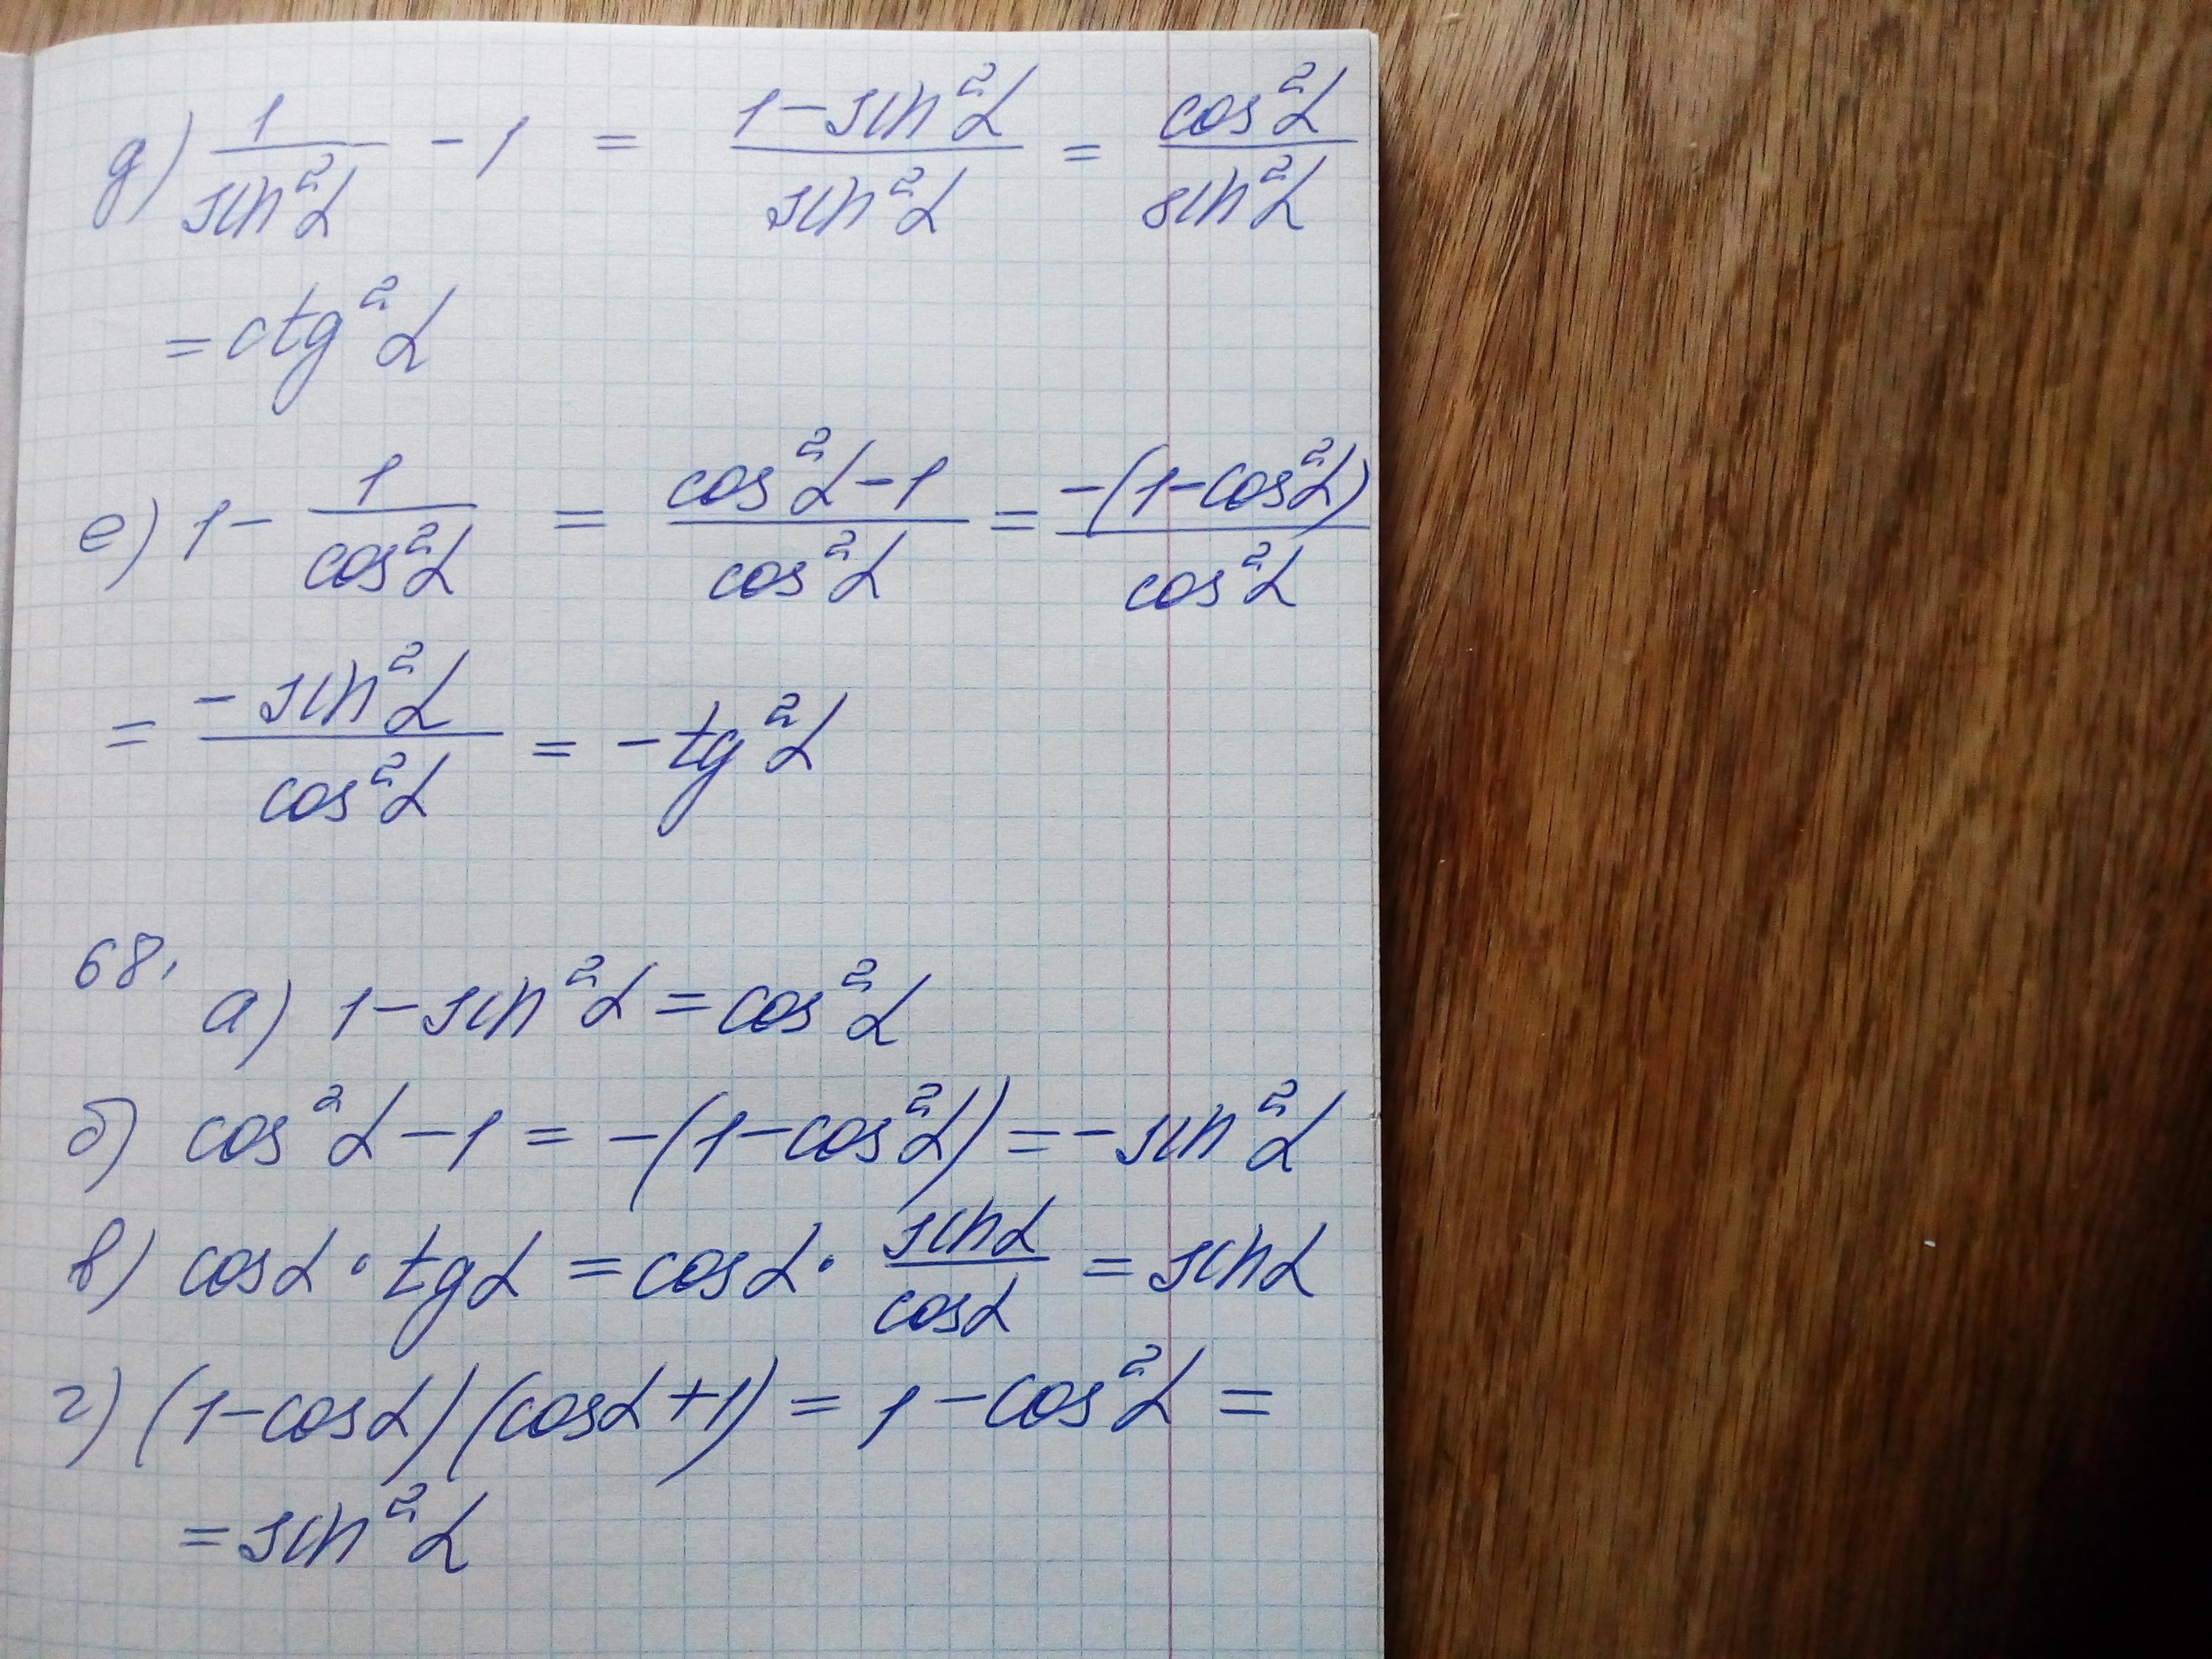 д) 1/sin²α - 1 = (1-sin²α)/sin²α = cos²α/sin²α
= ctg²α
е) 1 - 1/cos²α = (cos²α-1)/cos²α = -(1-cos²α)/cos²α
= -sin²α/cos²α = -tg²α
68.
а) 1-sin²α = cos²α
б) cos²α-1 = -(1-cos²α) = -sin²α
в) cosα·tgα = cosα·sinα/cosα = sinα
г) (1-cosα)(cosα+1) = 1-cos²α =
= sin²α